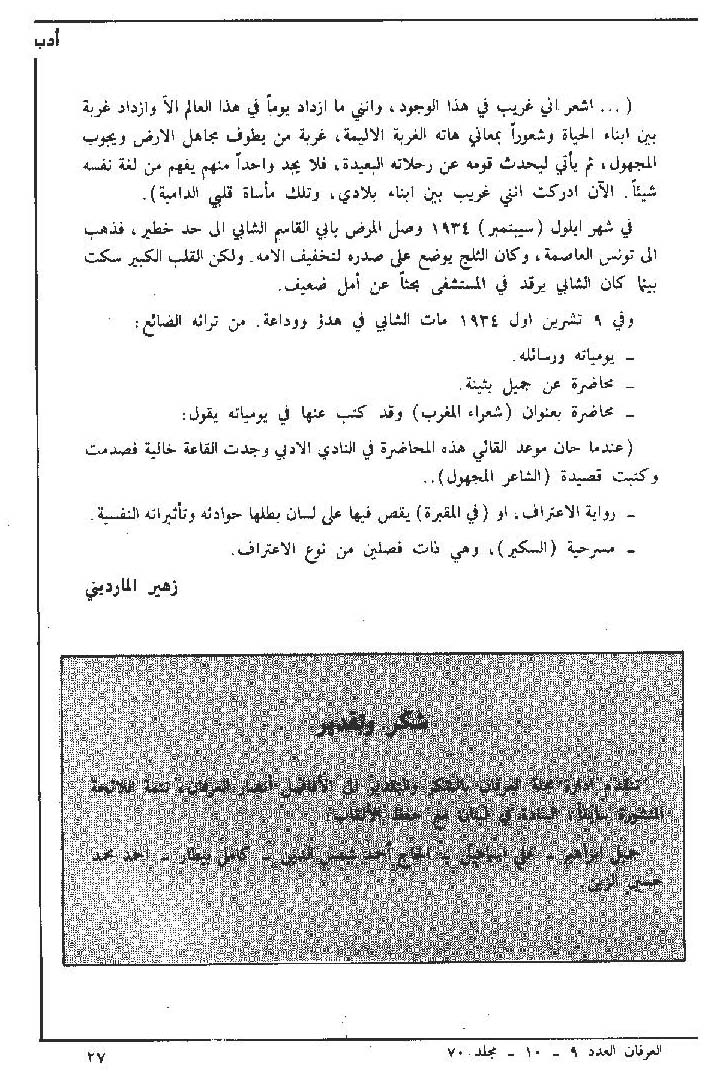 أدب
(... اشعر اني غريب في هذا الوجود، وانني ما ازداد يوماً في هذا العالم الاّ وازداد غربة
بين ابناء الحياة وشعوراً بمعاني هاته الغربة الاليمة، غربة من يطوف مجاهل الارض ويجوب
المجهول، ثم يأتي ليحدث قومه عن رحلاته البعيدة، فلا يجد واحداً منهم يفهم من لغة نفسه
شيئاً. الآن ادركت انني غريب بين ابناء بلادي، وتلك مأساة قلبي الدامية).
في شهر ايلول (سيبتمبر) ١٩٣٤ وصل المرض بابي القاسم الشابي الى حد خطير، فذهب
الى تونس العاصمة، وكان الثلج يوضع على صدره لتخفيف الامه. ولكن القلب الكبير سكت
بينما كان الشابي يرقد في المستشفى بحثاً عن أمل ضعيف.
وفي ٩ تشرين اول ١٩٣٤ مات الشابي في هدؤ ووداعة. من تراثه الضائع:
ـ يومياته ورسائله.
ـ محاضرة عن جميل بثينة.
ـ محاضرة بعنوان (شعراء المغرب) وقد كتب عنها في يومياته يقول:
(عندما حان موعد القائي هذه المحاضرة في النادي الادبي وجدت القاعة خالية فصدمت
وكتبت قصيدة (الشاعر المجهول)..
ـ رواية الاعتراف، او (في المقبرة) يقص فيها على لسان بطلها حوادثه وتأثيراته النفسية.
ـ مسرحية (السكير)، وهي ذات فصلين من نوع الاعتراف.
زهير المارديني
شكر وتقدير
تتقدم ادارة مجلة العرفان بالشكر والتقدير من الأفاضل أنصار العرفان، تتمة للائحة
المنشورة سابقاً، السادة في لبنان مع حفظ الألقاب:
جميل ابراهيم ـ علي اسماعيل ـ الحاج أحمد شمس الدين ـ كامل بيطار ـ احمد محمد
حسين الزين
العرفان العدد ٩ ـ ١٠ ـ مجلد ٧٠
٢٧